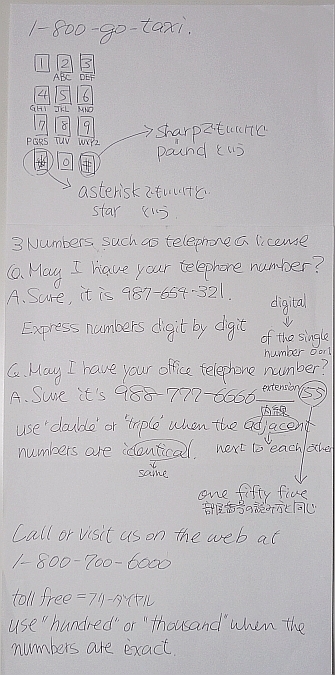 1-800-go-taxi.
1 2 3
ABC DEF
4 5 6
GHI JKL MNO
7 8 9
PQRS TUV WXYZ
* 0 #
sharpでもいいけど
pound という
asteriskでもいいけど
star という
3 Numbers such as telephone & license
Q. May I have your telephone number?
A. Sure, it is 987-654-321.
digital
Express numbers digit by digit
of the single
number 0 or 1
Q. May I have your office telephone number?
A. Sure it's 988-777-6666 extension 155
内線
use 'double' or 'triple' when the adjacent
numbers are identical. next to each other
same
one fifty five
部屋番号の読み方と同じ
Call or visit us on the web at
1-800-700-6000
toll free = フリーダイヤル
use "hundred" or "thousand" when the
numbers are exact.